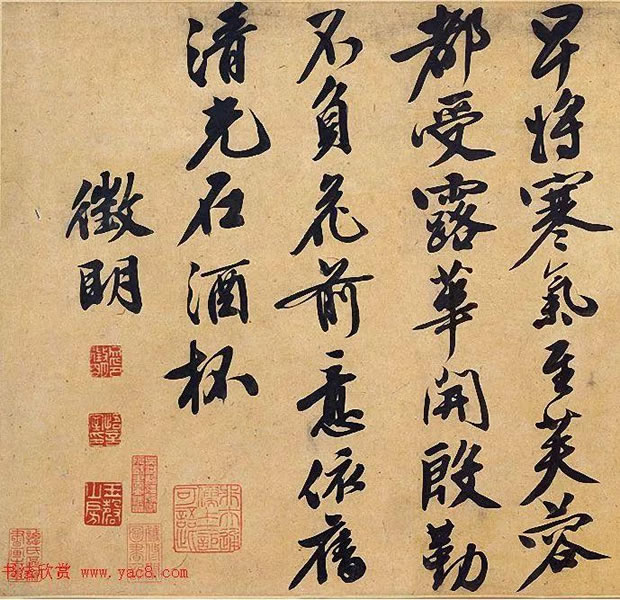 早将寒氣至芙蓉
都受露華開殷勤
不負花前意依舊
清光在酒杯
徵明
玉磬山房
书法欣赏 www.yac8.com